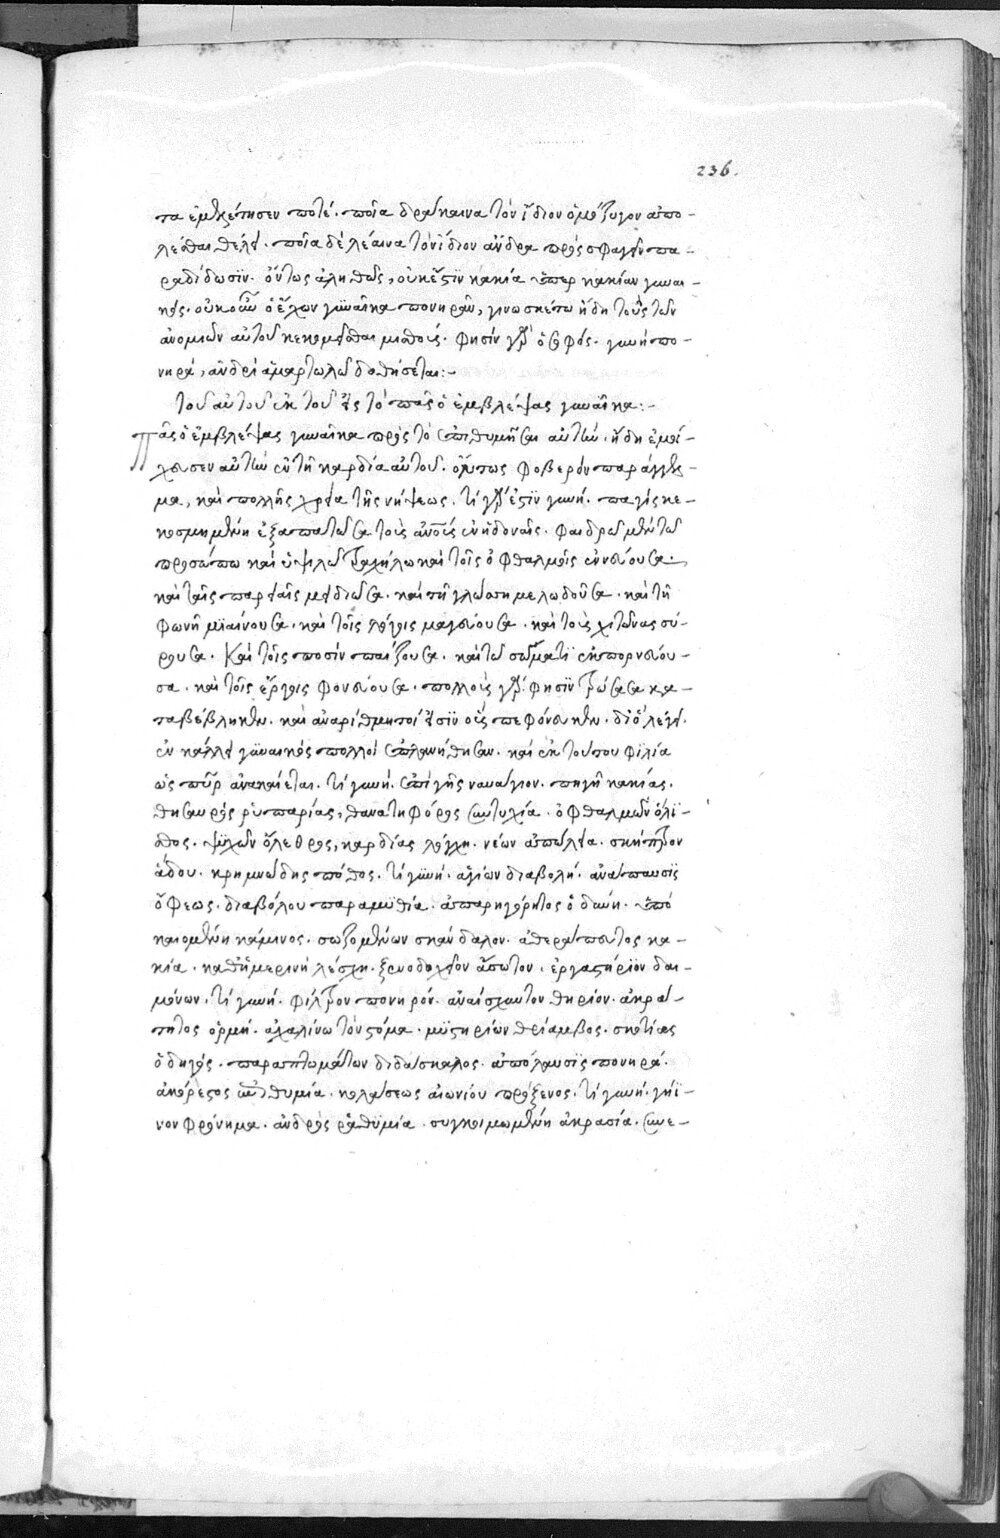 236.
τα ἐμνέτησεν ποτέ. ποῖα δράκαινα τὸν ἴδιον ὁμόζυγον ἀπο-
λέσθαι θέλει. ποῖα δὲ λέαινα τὸν ἴδιον ἄνδρα πρὸς σφαγὴν πα-
ραδίδωσιν. ὄντως ἀληθῶς, οὐκ ἔστϊν κακία ὑπὲρ κακίαν γυναι-
κός. οὐκοῦν ὁ ἔχων γυναῖκα πονηρὰν, γινωσκέτω ἤδη τοὺς τῶν
ἀνομιῶν αὐτοῦ κεκομίσθαι μισθούς. φησὶν γὰρ ὁ σοφός. γυνὴ πο-
νηρά, ἀνδρὶ ἁμαρτωλῶ δοθήσεται:-
τοῦ αὐτοῦ ἐκ τοῦ εἰς τὸ πᾶς ὁ ἐμβλέψας γυναῖκα:-
Πᾶς ὁ ἐμβλέψας γυναῖκα πρὸς τὸ ἐπιθυμῆσαι αὐτὴν. ἤδη ἐμοί-
χευσεν αὐτὴν ἐν τῆ καρδία αὐτοῦ. ὄντως φοβερὸν παράγγελ-
μα, καὶ πολλῆς χρεία τῆς νήψεως. τί γὰρ ἐστϊν γυνή. παγὶς κε-
κοσμημένη ἐξαπατῶσα τοὺς ἀνθρώπους ἐν ἡδοναῖς. φαιδρῶ μὲν τῶ
προσώπω καὶ ὑψηλῶ τραχήλω καὶ τοῖς ὀφθαλμοῖς ἐννεύουσα.
καὶ ταῖς παρειαῖς μειδιῶσα. καὶ τῆ γλώσση μελωδοῦσα. καὶ τῆ
φωνῆ μϊαίνουσα. καὶ τοῖς λόγοις μαγεύουσα. καὶ τοὺς χιτῶνας σύ-
ρουσα. καὶ τοῖς ποσὶν παίζουσα. καὶ τῶ σώματϊ ἐκπορνεύου-
σα. καὶ τοῖς ἔργοις φονεύουσα. πολλοὺς γὰρ φησϊν τρώσασα κα-
ταβέβληκεν. καὶ ἀναρίθμητοί εἰσϊν οὓς πεφόνευκεν. διὸ λέγει.
ἐν κάλλει γυναικὸς πολλοὶ ἐπλανήθησαν. καὶ ἐκ τούτου φιλία
ὡς πῦρ ἀνακαίεται. τί γυνή. ἐπὶ γῆς ναυάγιον. πηγὴ κακίας.
θησαυρὸς ῥυπαρίας, θανατηφόρος συντυχία. ὀφθαλμῶν ὀλϊ-
σθος. ψυχῶν ὄλεθρος, καρδίας λόγχη. νέων ἀπώλεια. σκῆπτρον
ἅδου. κρημνώδης πόθος. τί γυνή. ἁγίων διαβολή. ἀνάπαυσϊς
ὄφεως. διαβόλου παραμυθία. ἀπαρηγόρητος ὀδύνη. ὑπὸ
καιομένη κάμινος. σωζομένων σκάνδαλον. ἀθεράπευτος κα-
κία. καθημερινὴ λέσχη. ξενοδοχεῖον ἄσωτον. ἐργαστήριον δαι-
μόνων. τί γυνή. φίλτρον πονηρόν. ἀναίσχυντον θηρίον. ἀκρά-
τητος ὁρμή. ἀχαλίνωτον στόμα. μυστηρίων θρίαμβος. σκοτίας
ὁδηγός. παραπτωμάτων διδάσκαλος. ἀπόλαυσϊς πονηρά.
ἀκόρεστος ἐπιθυμία. κολάσεως αἰωνίου πρόξενος. τί γυνή. γήϊ-
νον φρόνημα. ἀνδρὸς ῥαθυμία. συγκοιμωμένη ἀκρασία. συνε-